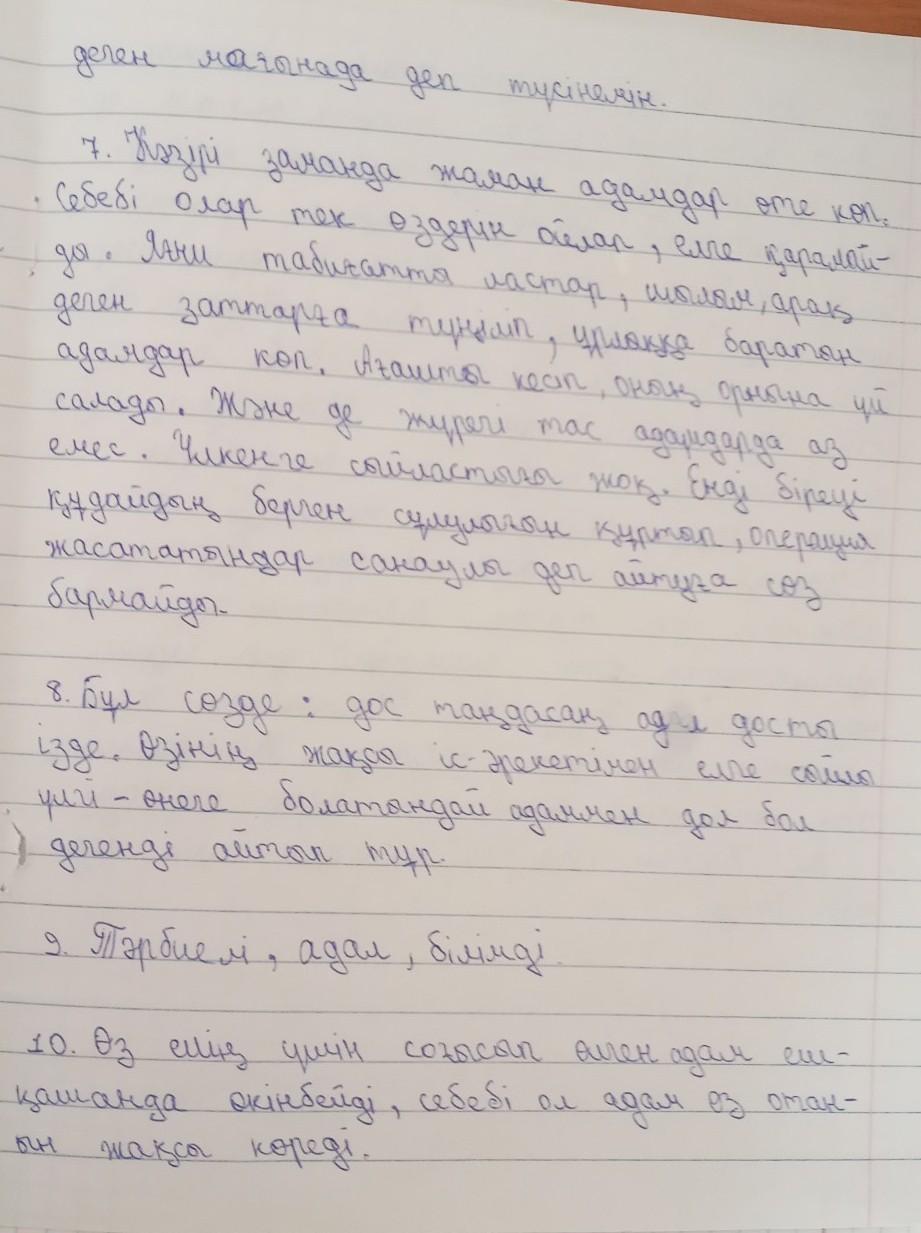 деген мағынада деп түсінемін.
7. Қазіргі заманда жаман адамдар өте көп.
Себебі олар тек өздерін ойлап, елге қарамай-
ды. Яғни табиғатты ластап, шылым, арақ
деген заттарға түңіліп, ұрлыққа баратын
адамдар көп. Ағашты кесіп, оның орнына үй
салады. Және де жүрегі тас адамдарда аз
емес. Үлкенге сыйластығы жоқ. Енді біреуі
құдайдың берген сұлулығын құртып, операция
жасататындар санаулы деп айтуға сөз
бармайды.
8. Бұл сөзде: дос таңдасаң адал досты
ізде. Өзінің жақсы іс-әрекетімен елге сыйлы
үлгі-өнеге болатындай адаммен дос бол
дегенді айтып тұр.
9. Тәрбиелі, адал, білімді.
10. Өз елің үшін соғысып өлген адам еш-
қашанда өкінбейді, себебі ол адам өз отан-
ын жақсы көреді.